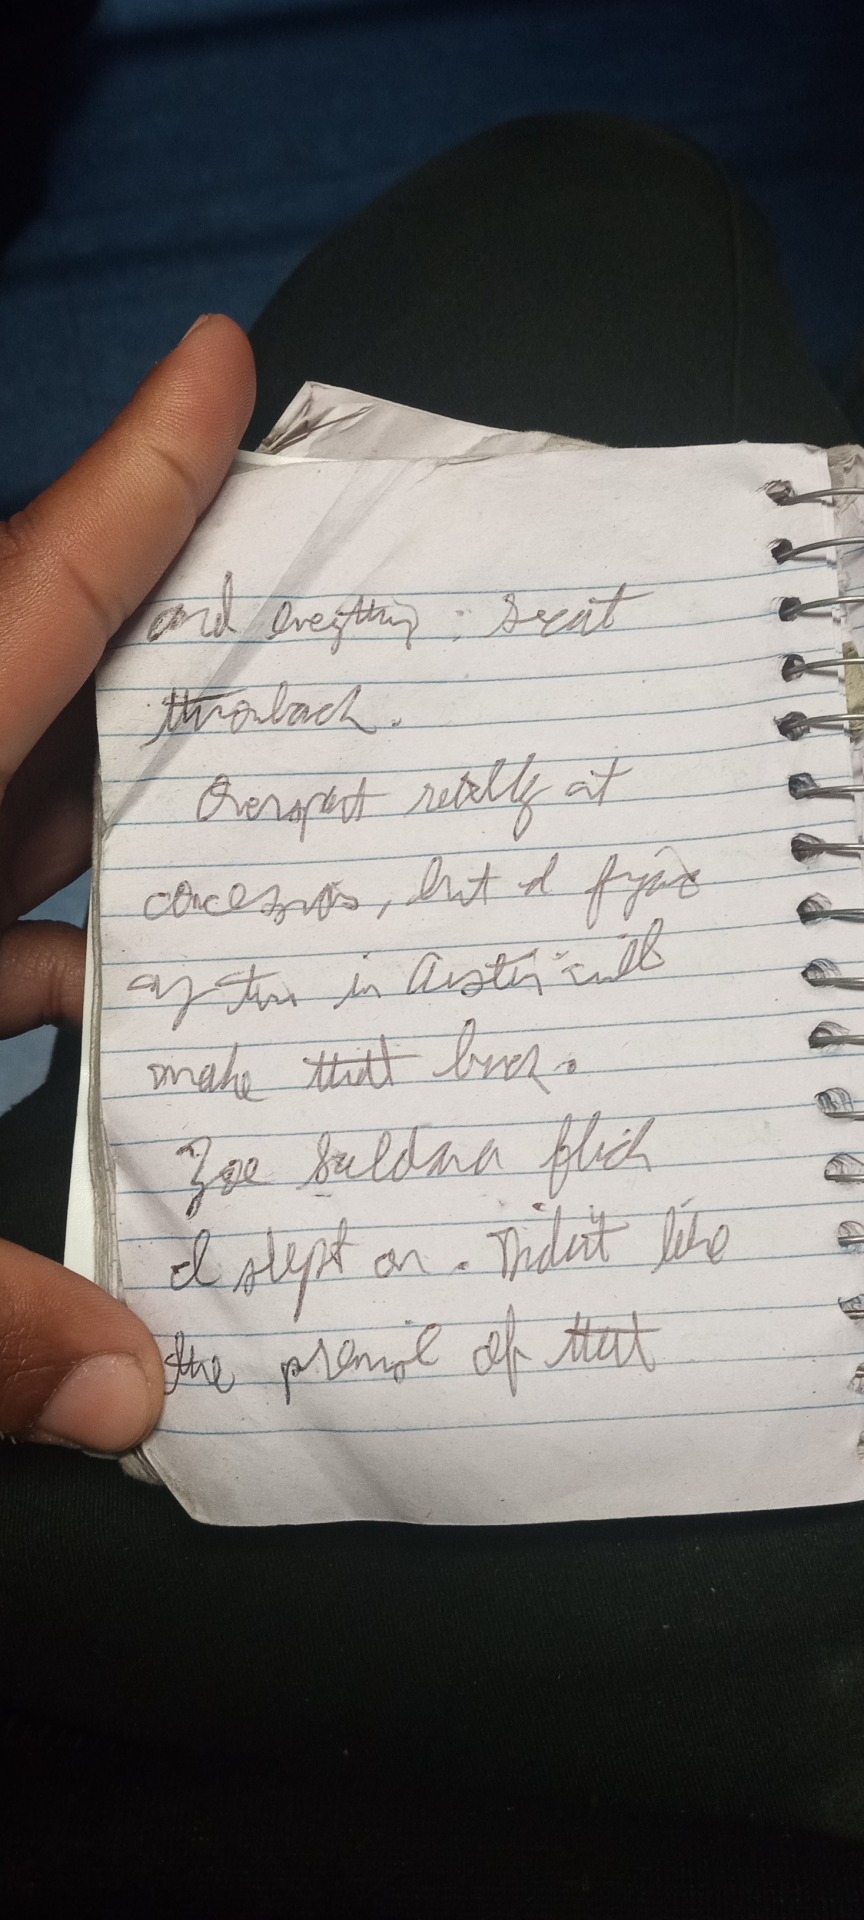 and everything; seat
throwback.
Overspent really at
concessions, but I figure
my time in Austin will
make that back.
Zoe Saldana flick
I slept on. Didn't like
the premise of that